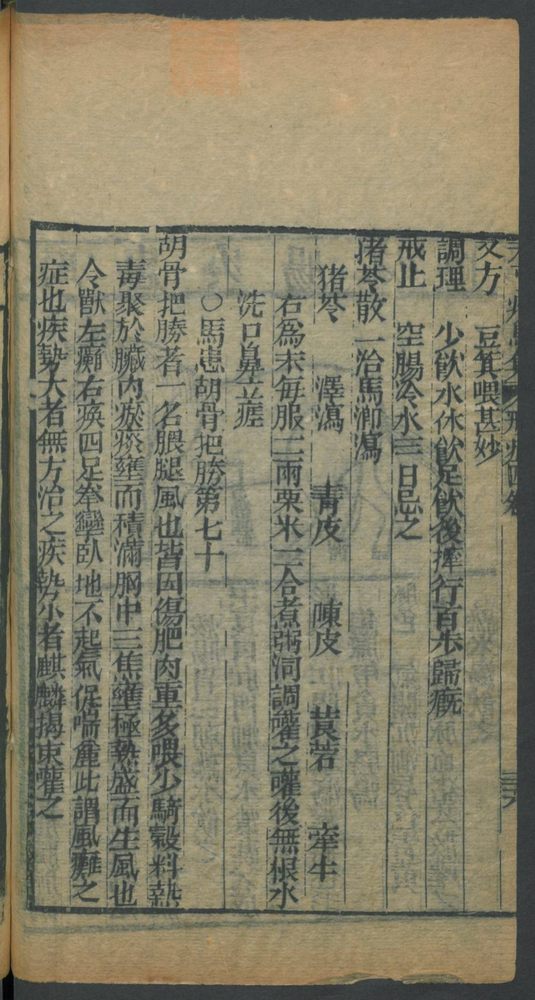 又方　豆箕喂甚妙
調理　少飲水休飲足飲後撁行百步歸廐
戒止　空腸冷水三日忌之
猪苓散　治馬瀉
猪苓　澤瀉　青皮　陳皮　莨菪　牽牛
右為末每服二兩粟米二合煮粥同調灌之灌後無根水
洗口鼻差
○馬患胡骨把勝第七十
胡骨把勝者一名腲腿風也皆因傷肥肉重多喂少騎穀料熱
毒聚於臟內瘀痰壅而積滿胸中三焦壅極熱盛而生風也
令獸左癱右瘓四足拳攣臥地不起氣促喘麄此謂風癱之
症也疾勢大者無方治之疾勢小者麒麟竭東灌之